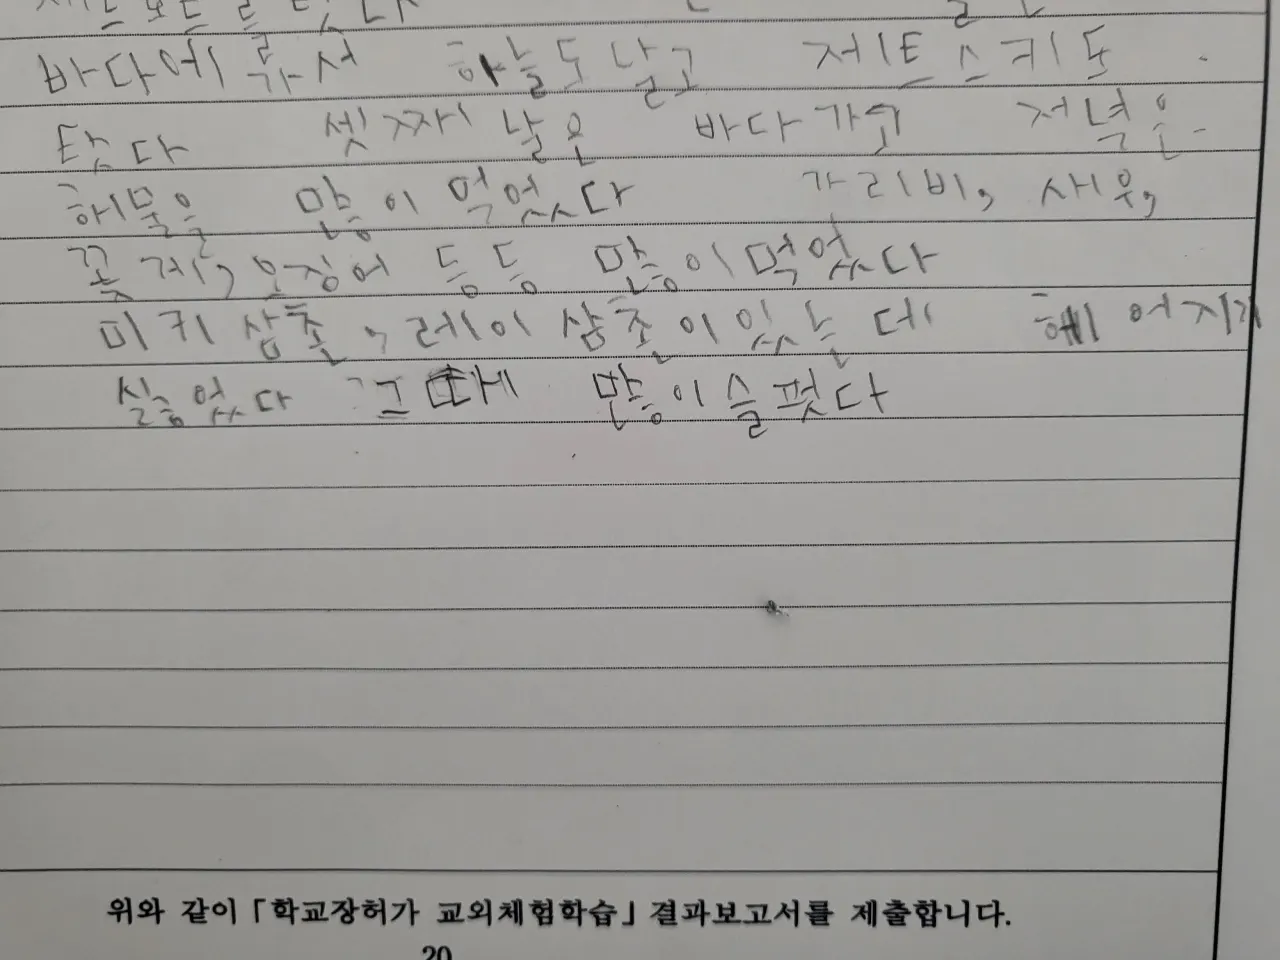 바다에 가서 하늘도 날고 제트스키도
탔다 셋째 날은 바다 가고 저녁은
해물을 많이 먹었다 가리비, 새우,
꽃게, 오징어 등등 많이 먹었다
미키 삼촌, 레이 삼촌이 있는데 헤어지기
싫었다 그때 많이 슬펏다
위와 같이 「학교장허가 교외체험학습」 결과보고서를 제출합니다.
20